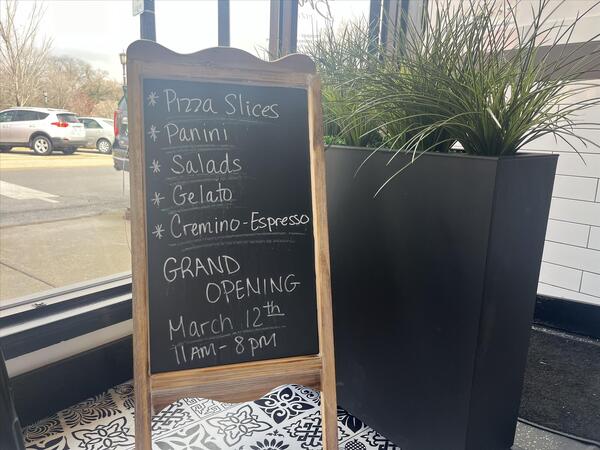 * Pizza Slices
* Panini
* Salads
* Gelato
* Cremino-Espresso
GRAND
OPENING
March 12th
11AM - 8pm